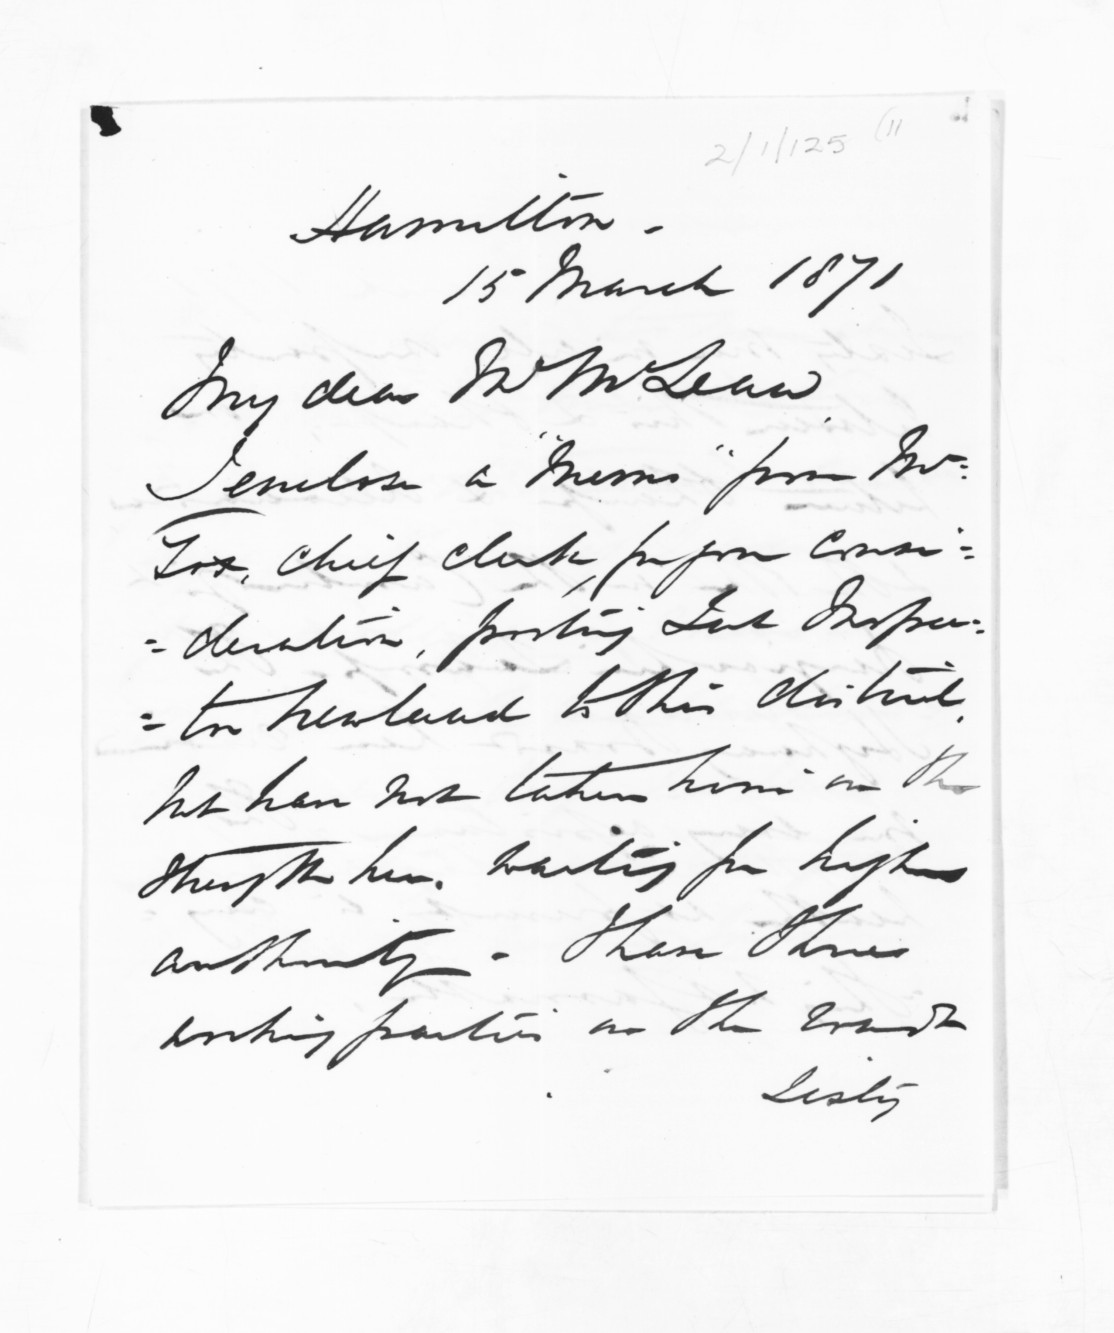 2/1/125 (11
Hamilton -
15 March 1871
My dear Mr McLean
I enclose a "Memo" from Mr =
Fox, chief clerk, for your consi =
= deration, posting Sub Inspec =
= tor Newland to this district,
but have not taken him on the
strength here. waiting for higher
authority - I have three
working parties on the
Sixty